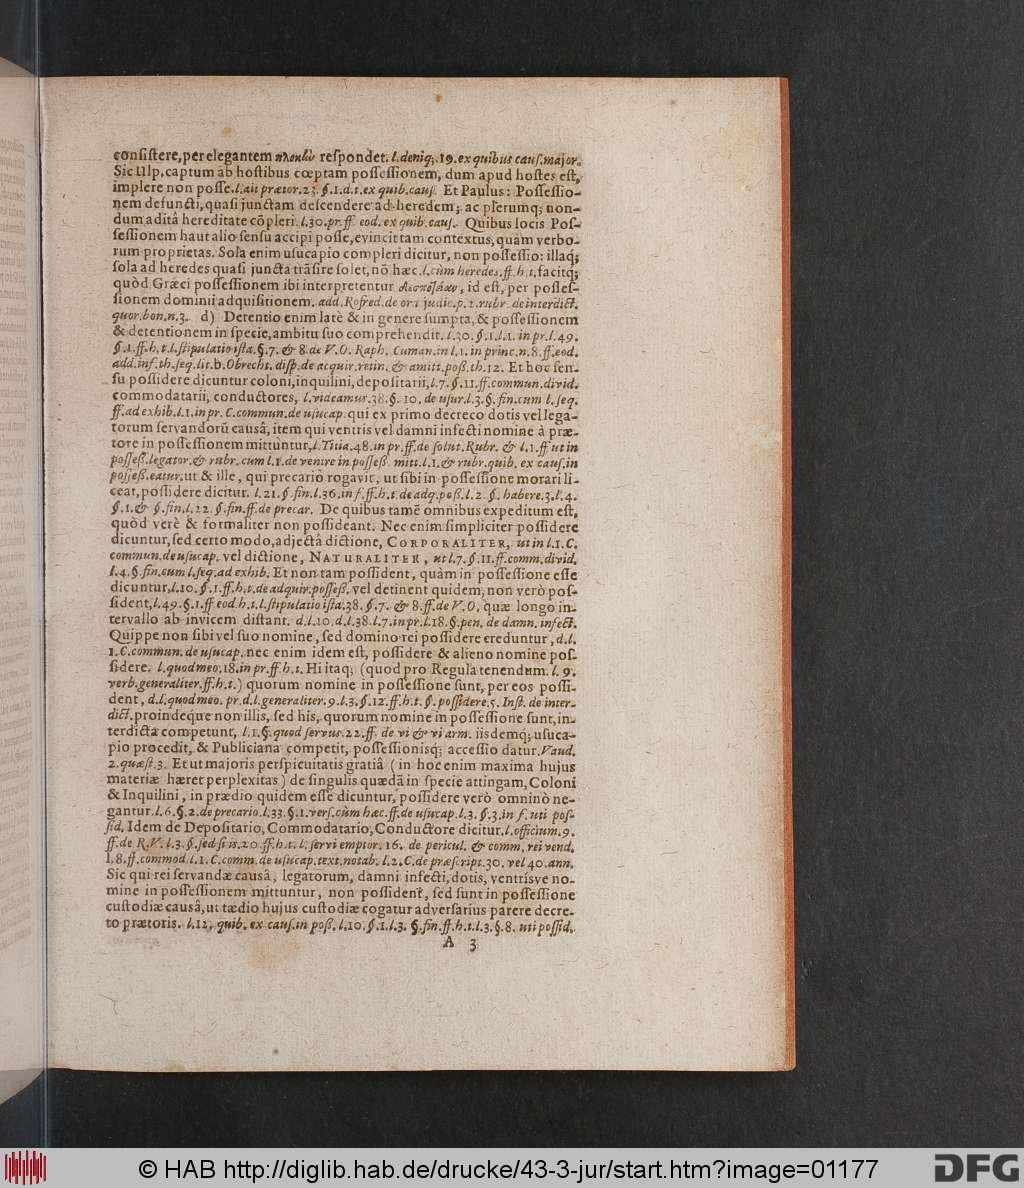 consistere, per elegantem πλοκὴν respondet. l. deniq; 19. ex quibus caus. major.
Sic Ulp. captum ab hostibus cœptam possessionem, dum apud hostes est,
implere non posse. l. ait prætor. 23. §. 1. d. t. ex quib. caus. Et Paulus: Possessio-
nem defuncti, quasi junctam descendere ad heredem; ac plerumq; non-
dum aditâ hereditate cõpleri. l. 30. pr. ff. eod. ex quib. caus. Quibus locis Pos-
sessionem haut alio sensu accipi posse, evincit tam contextus, quàm verbo-
rum proprietas. Sola enim usucapio compleri dicitur, non possessio: illaq;
sola ad heredes quasi juncta trãsire solet, nõ hæc. l. cùm heredes. ff. h. t. facitq;
quòd Græci possessionem ibi interpretentur , id est, per posses-
sionem dominii adquisitionem. add. Rofred. de ord. judic. p. 2. rubr. de interdict.
quor. bon. n. 3. d) Detentio enim latè & in genere sumpta, & possessionem
& detentionem in specie, ambitu suo comprehendit. l. 30. §. 1. l. 1. in pr. l. 49.
§. 1. ff. h. t. l. stipulatio ista. §. 7. & 8. de V. O. Raph. Cuman. in l. 1. in princ. n. 8. ff. eod.
add. inf. th. seq. lit. b. Obrecht. disp. de acquir. retin. & amitt. poß. th. 12. Et hoc sen-
su possidere dicuntur coloni, inquilini, depositarii, l. 7. §. 11. ff. commun. divid.
commodatarii, conductores, l. videamus. 38. §. 10. de usur. l. 3. §. fin. cum l. seq.
ff. ad exhib. l. 1. in pr. C. commun. de usucap. qui ex primo decreco dotis vel lega-
torum servandorũ causâ, item qui ventris vel damni infecti nomine à præ-
tore in possessionem mittuntur, l. Titia. 48. in pr. ff. de solut. Rubr. & l. 1. ff. ut in
posseß. legator. & rubr. cum l. 1. de ventre in posseß. mitt. l. 1. & rubr. quib. ex caus. in
posseß. eatur. ut & ille, qui precario rogavit, ut sibi in possessione morari li-
ceat, possidere dicitur. l. 21. §. fin. l. 36. in f. ff. h. t. de adq. poß. l. 2. §. habere. 3. l. 4.
§. 1. & §. fin. l. 22. §. fin. ff. de precar. De quibus tamẽ omnibus expeditum est,
quòd verè & formaliter non possideant. Nec enim simpliciter possidere
dicuntur, sed certo modo, adjectâ dictione, CORPORALITER, ut in l. 1. C.
commun. de usucap. vel dictione, NATURALITER, ut l. 7. §. 11. ff. comm. divid.
l. 4. §. fin. cum l. seq. ad exhib. Et non tam possident, quàm in possessione esse
dicuntur, l. 10. §. 1. ff. h. t. de adquir. posseß. vel detinent quidem, non verò pos-
sident, l. 49. §. 1. ff. eod. h. t. l. stipulatio ista. 38. §. 7. & 8. ff. de V. O. quæ longo in-
tervallo ab invicem distant. d. l. 10. d. l. 38. l. 7. in pr. l. 18. §. pen. de damn. infect.
Quippe non sibi vel suo nomine, sed domino rei possidere creduntur, d. l.
1. C. commun. de usucap. nec enim idem est, possidere & alieno nomine pos-
sidere. l. quod meo. 18. in pr. ff. h. t. Hi itaq; (quod pro Regula tenendum. l. 9.
verb. generaliter. ff. h. t.) quorum nomine in possessione sunt, per eos possi-
dent, d. l. quod meo. pr. d. l. generaliter. 9. l. 3. §. 12. ff. h. t. §. possidere. 5. Inst. de inter-
dict. proindeque non illis, sed his, quorum nomine in possessione sunt, in-
terdicta competunt, l. 1. §. quod servus. 22. ff. de vi & vi arm. iisdemq; usuca-
pio procedit, & Publiciana competit, possessionisq; accessio datur. Vaud.
2. quæst. 3. Et ut majoris perspicuitatis gratiâ (in hoc enim maxima hujus
materiæ hæret perplexitas) de singulis quædã in specie attingam, Coloni
& Inquilini, in prædio quidem esse dicuntur, possidere verò omninò ne-
gantur. l. 6. §. 2. de precario. l. 33. §. 1. vers. cùm hæc. ff. de usucap. l. 3. §. 3. in f. uti pos-
sid. Idem de Depositario, Commodatario, Conductore dicitur. l. officium. 9.
ff. de R. V. l. 3. §. sed si is. 20. ff. h. t. l. servi emptor. 16. de pericul. & comm. rei vend.
l. 8. ff. commod. l. 1. C. comm. de usucap. text. notab. l. 2. C. de præscript. 30. vel 40. ann.
Sic qui rei servandæ causâ, legatorum, damni infecti, dotis, ventrisve no-
mine in possessionem mittuntur, non possident, sed sunt in possessione
custodiæ causâ, ut tædio hujus custodiæ cogatur adversarius parere decre-
to prætoris. l. 12. quib. ex caus. in poß. l. 10. §. 1. l. 3. §. fin. ff. h. t. l. 3. §. 8. uti possid.
A 3
© HAB http://diglib.hab.de/drucke/43-3-jur/start.htm?image=01177
DFG